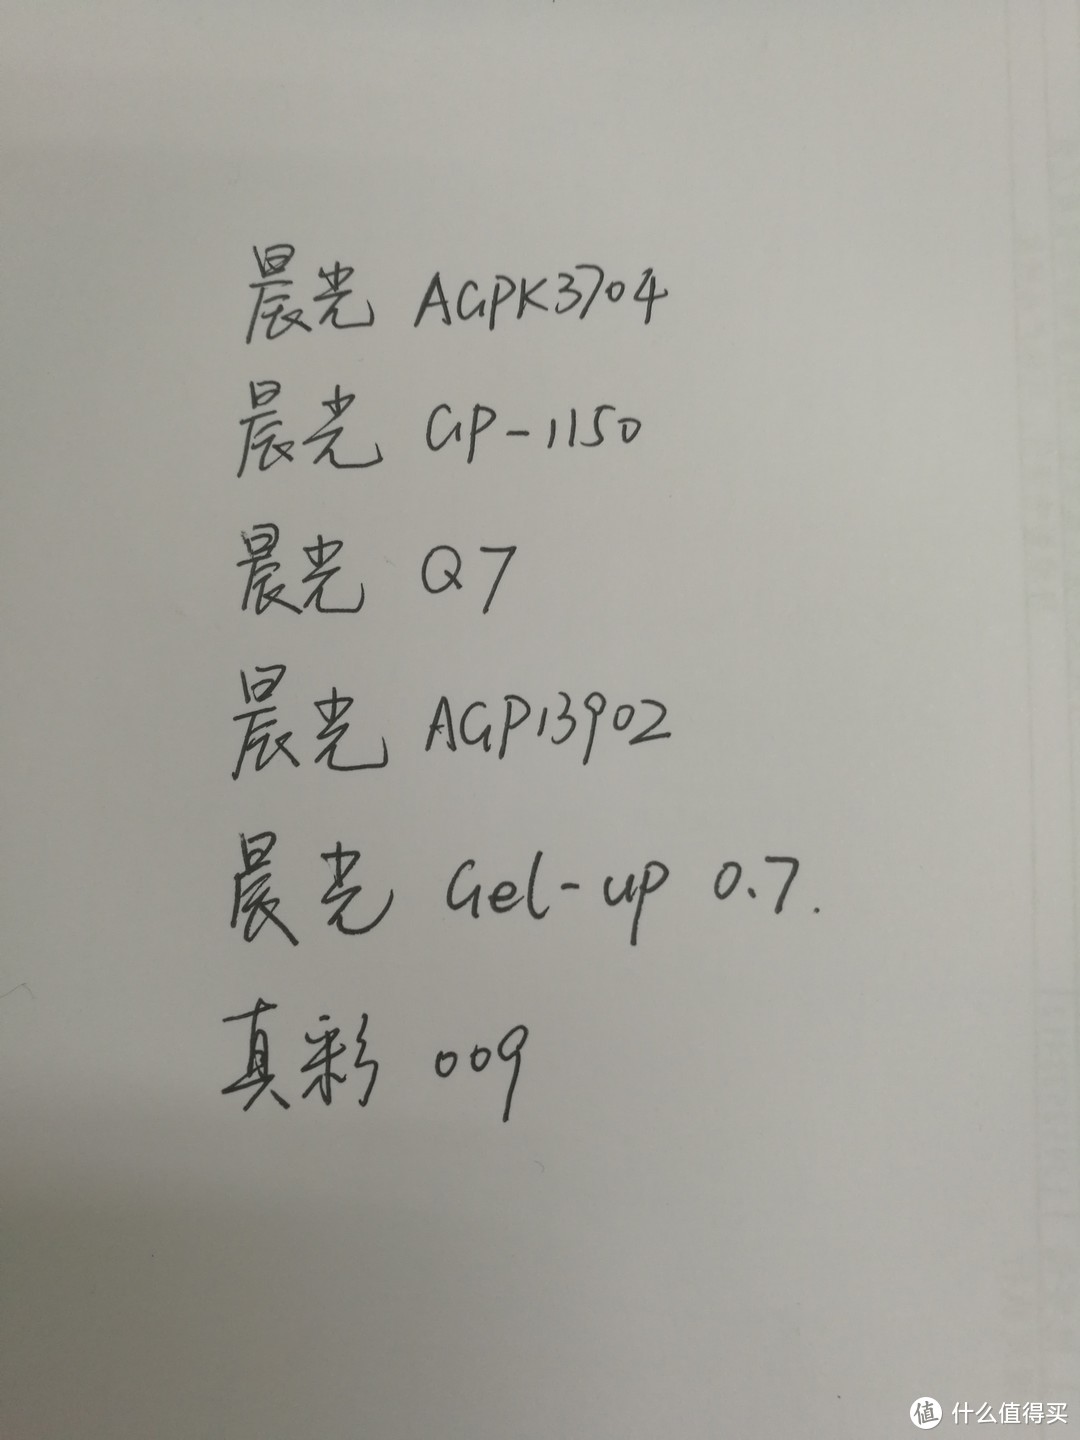 晨光 AGPK3704
晨光 GP-1150
晨光 Q7
晨光 AGP13902
晨光 Gel-up 0.7.
真彩 009
值 什么值得买